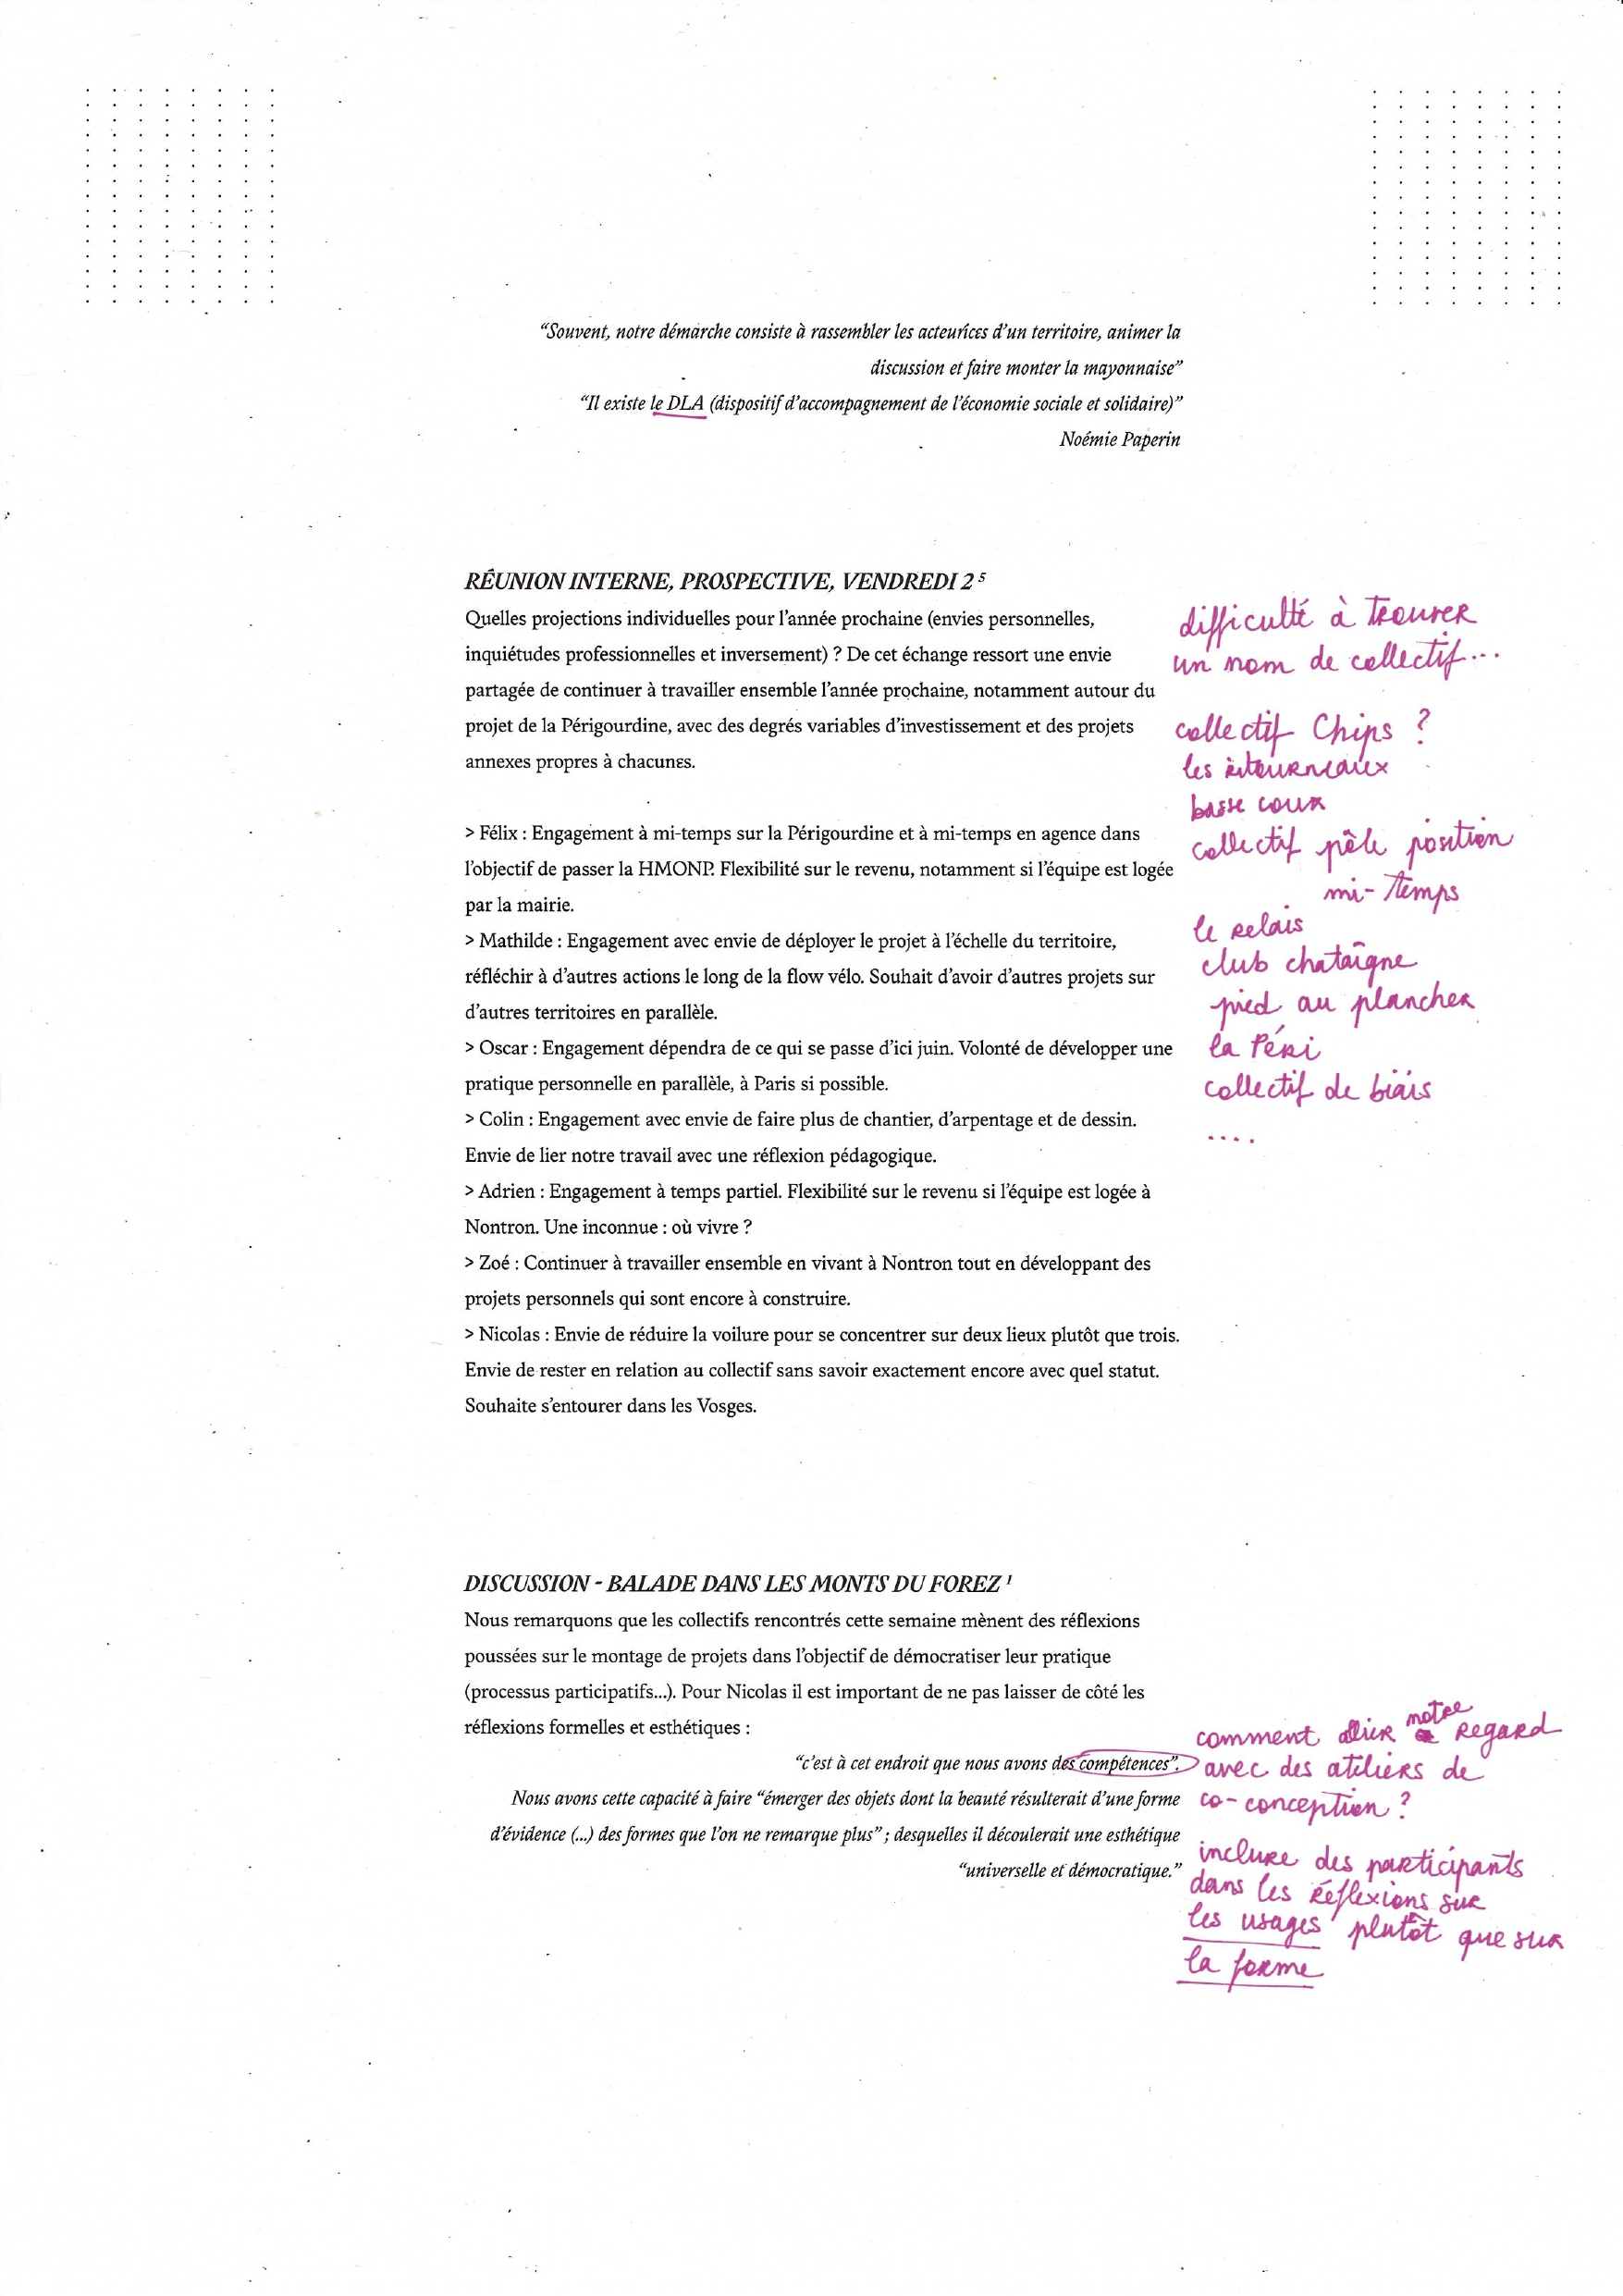 “Souvent, notre démarche consiste à rassembler les acteurices d’un territoire, animer la
discussion et faire monter la mayonnaise”
“Il existe le DLA (dispositif d’accompagnement de l’économie sociale et solidaire)”
Noémie Paperin
RÉUNION INTERNE, PROSPECTIVE, VENDREDI 2 ⁵
Quelles projections individuelles pour l’année prochaine (envies personnelles,
inquiétudes professionnelles et inversement) ? De cet échange ressort une envie
partagée de continuer à travailler ensemble l’année prochaine, notamment autour du
projet de la Périgourdine, avec des degrés variables d’investissement et des projets
annexes propres à chacunes.
> Félix : Engagement à mi-temps sur la Périgourdine et à mi-temps en agence dans
l’objectif de passer la HMONP. Flexibilité sur le revenu, notamment si l’équipe est logée
par la mairie.
> Mathilde : Engagement avec envie de déployer le projet à l’échelle du territoire,
réfléchir à d’autres actions le long de la flow vélo. Souhait d’avoir d’autres projets sur
d’autres territoires en parallèle.
> Oscar : Engagement dépendra de ce qui se passe d’ici juin. Volonté de développer une
pratique personnelle en parallèle, à Paris si possible.
> Colin : Engagement avec envie de faire plus de chantier, d’arpentage et de dessin.
Envie de lier notre travail avec une réflexion pédagogique.
> Adrien : Engagement à temps partiel. Flexibilité sur le revenu si l’équipe est logée à
Nontron. Une inconnue : où vivre ?
> Zoé : Continuer à travailler ensemble en vivant à Nontron tout en développant des
projets personnels qui sont encore à construire.
> Nicolas : Envie de réduire la voilure pour se concentrer sur deux lieux plutôt que trois.
Envie de rester en relation au collectif sans savoir exactement encore avec quel statut.
Souhaite s’entourer dans les Vosges.
difficulté à trouver
un nom de collectif...
collectif Chips ?
les étourneaux
basse cour
collectif pôle position
mi-temps
le relais
club chataîgne
pied au plancher
la Péri
collectif de biais
....
DISCUSSION - BALADE DANS LES MONTS DU FOREZ ¹
Nous remarquons que les collectifs rencontrés cette semaine mènent des réflexions
poussées sur le montage de projets dans l’objectif de démocratiser leur pratique
(processus participatifs...). Pour Nicolas il est important de ne pas laisser de côté les
réflexions formelles et esthétiques :
“c’est à cet endroit que nous avons des compétences”.
Nous avons cette capacité à faire “émerger des objets dont la beauté résulterait d’une forme
d’évidence (...) des formes que l’on ne remarque plus” ; desquelles il découlerait une esthétique
“universelle et démocratique.”
comment allier notre regard
avec des ateliers de
co-conception ?
inclure des participants
dans les réflexions sur
les usages plutôt que sur
la forme